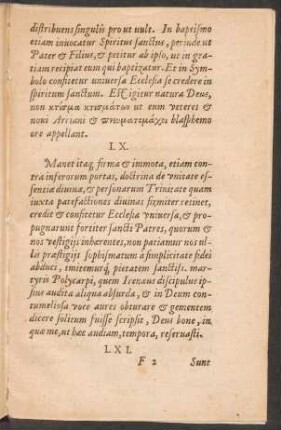 distribuens singulis pro ut uult. In baptismo
etiam inuocatur Spiritus sanctus, perinde ut
Pater & Filius, & petitur ab ipso, ut in gra-
tiam recipiat eum qui baptizatur. Et in Sym-
bolo confitetur uniuersa Ecclesia se credere in
spiritum sanctum. Est igitur natura Deus,
non κτίσμα κτισμάτων ut eum ueteres &
noui Arriani & πνευματομάχοι blasphemo
ore appellant.
LX.
Manet itaq; firma & immota, etiam con-
tra inferorum portas, doctrina de unitate es-
sentiæ diuinæ, & personarum Trinitate quam
iuxta patefactiones diuinas firmiter retinet,
credit & confitetur Ecclesia uniuersa, & pro-
pugnarunt fortiter sancti Patres, quorum &
nos uestigijs inhærentes, non patiamur nos ul-
lis præstigijs sophismatum à simplicitate fidei
abduci, imitemurq; pietatem sanctiss. mar-
tyris Polycarpi, quem Irenæus discipulus ip-
sius audita aliqua absurda, & in Deum con-
tumeliosa uoce aures obturare & gementem
dicere solitum fuisse scripsit, Deus bone, in
quæ me, ut hæc audiam, tempora, reseruasti.
LXI.
F 2 Sunt